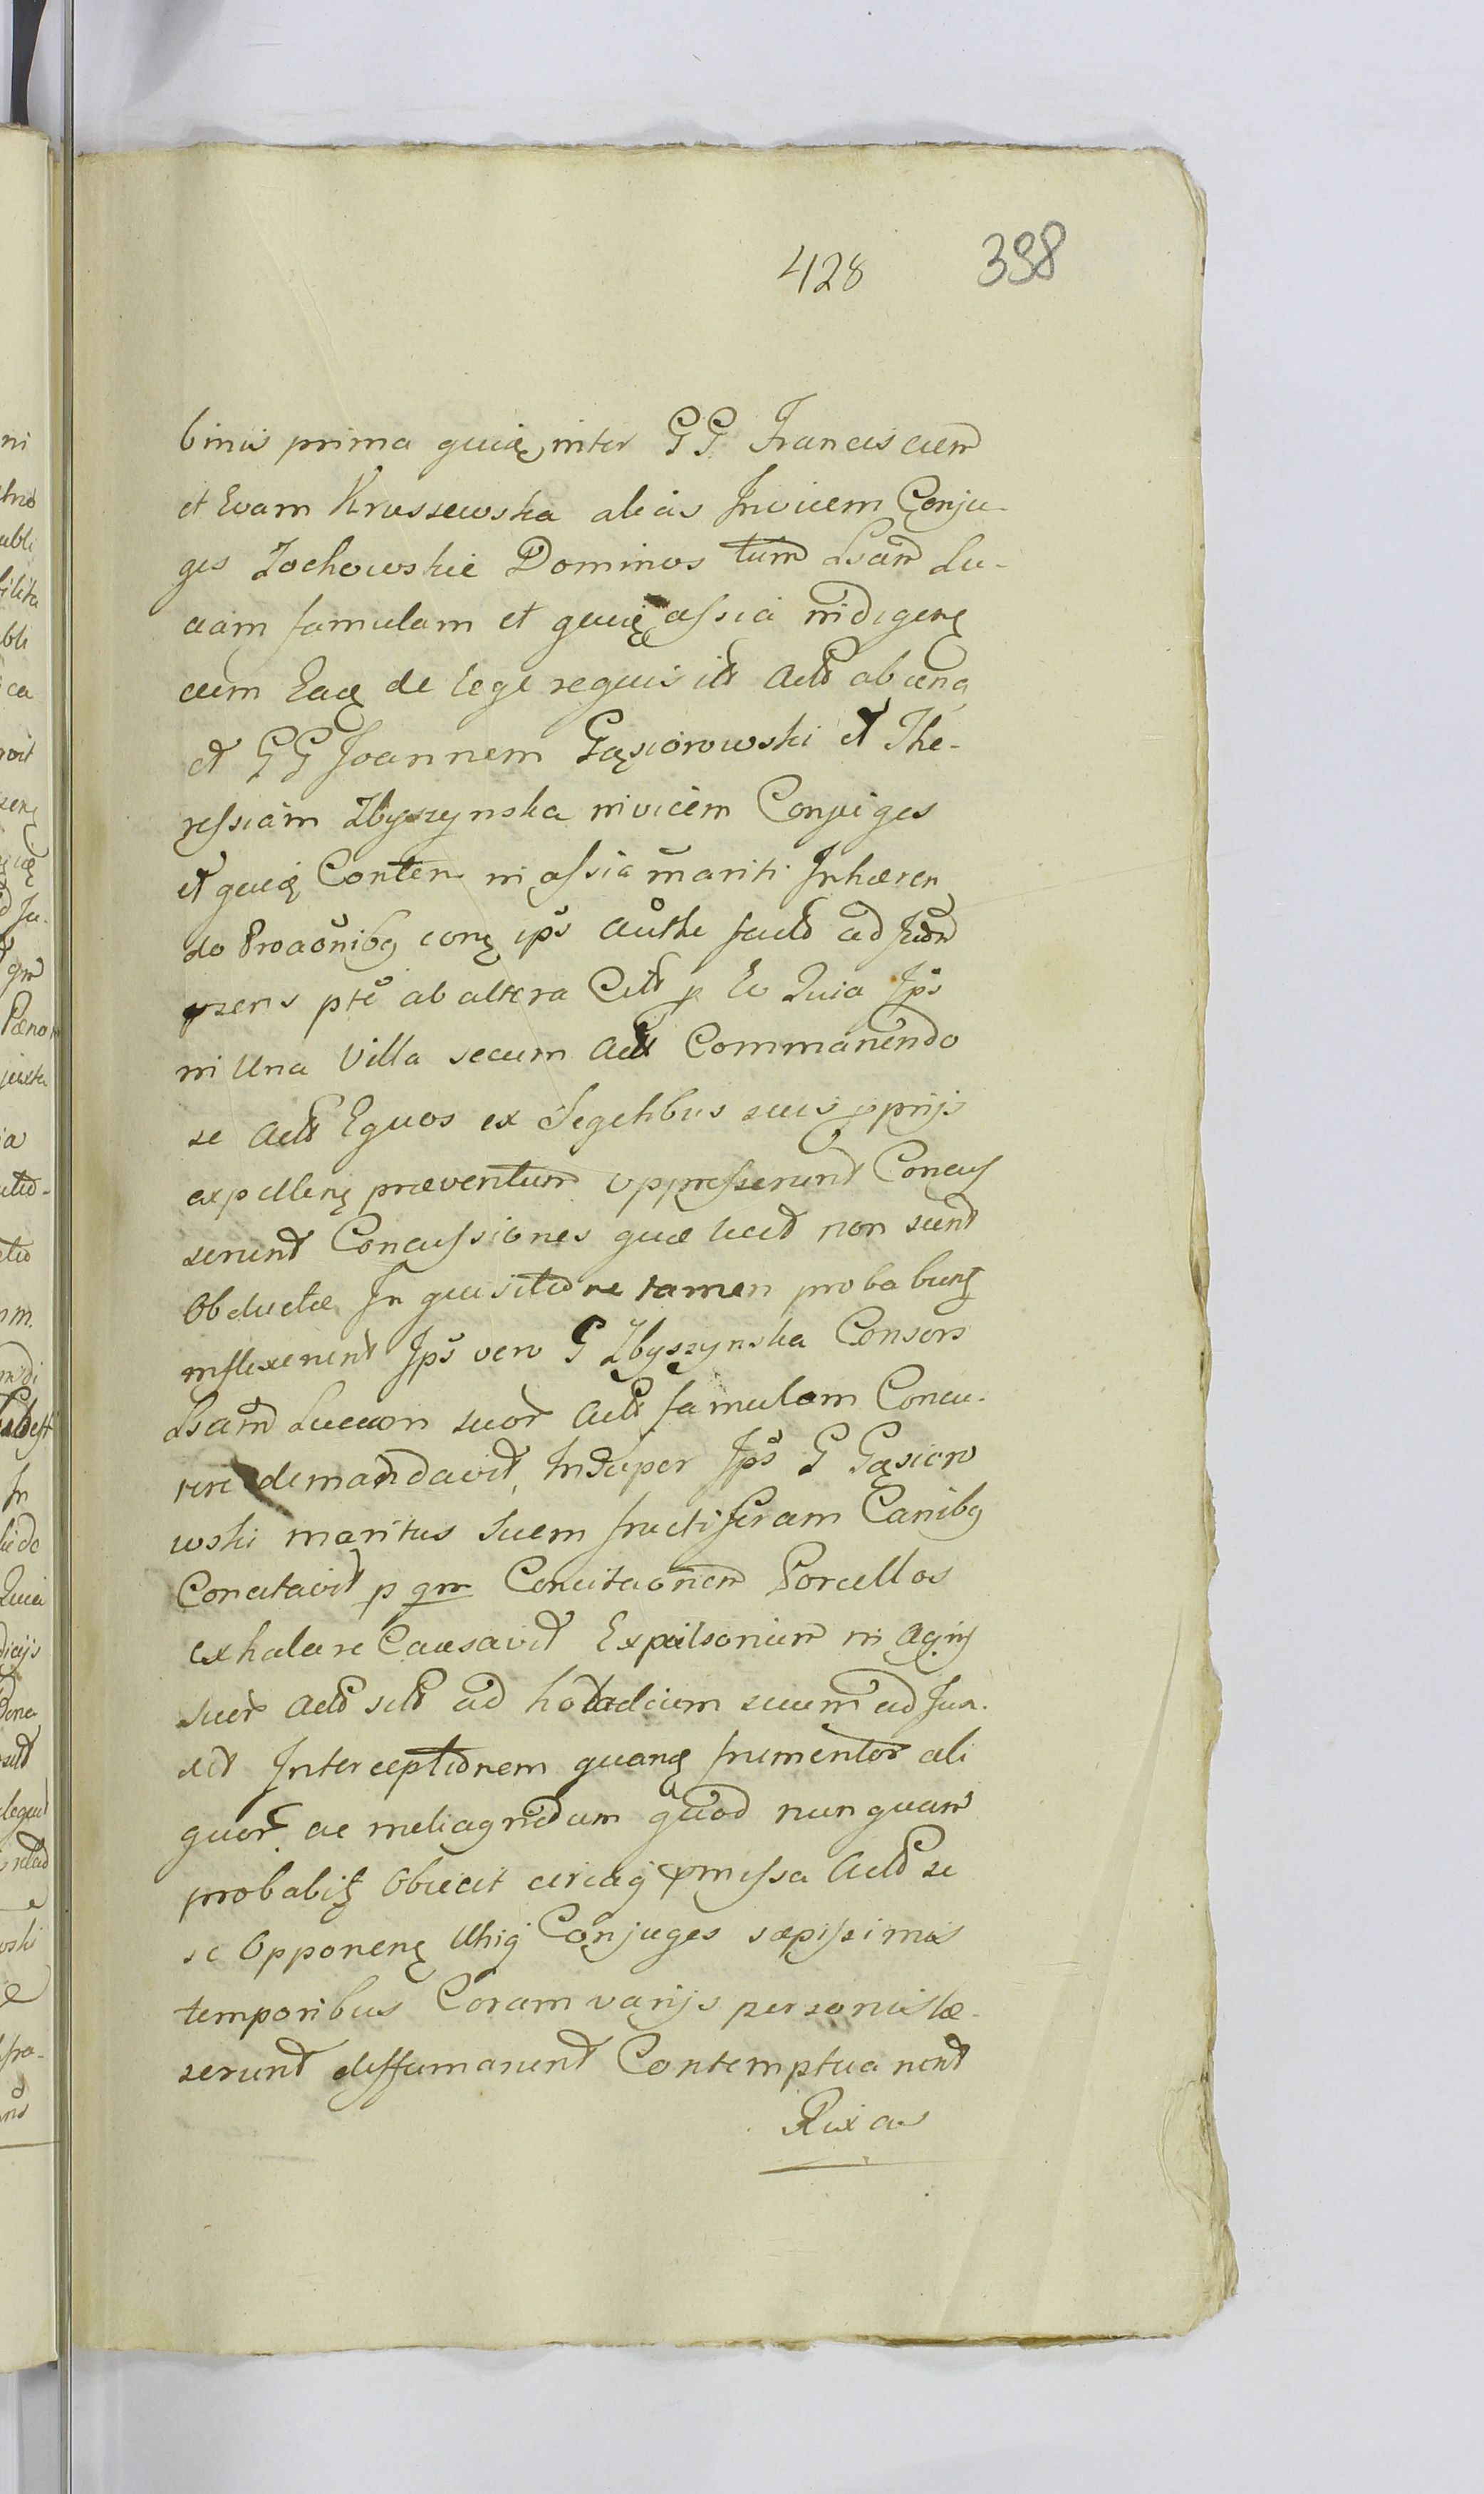 428 398
binis prima quidę inter GG Franciscum
et Evam Krussewska alias Invicem Conju-
ges Zochowskie Dominos tum Lsam Lu-
cam famulam et quidę assia indigenę
cum Eaq de lege requisit Acto ab una
et GG Joannem Gąsiorowski et The-
ressiam Zbyszynska invicem Conjuges
et quidę Conten in assia mariti Inhæren
do Proaonibq corę ips Authe facto ad
pzens pte ab altera Citt p Eo Quia Jps
in Una Villa secum Act Commanendo
se Acto Equos ex Segetibus suis pprijs
expellenę præventum oppresserunt Concus
serunt Concussiones quæ licet non sunt
Obductæ Inquisitione tamen probabunt
inflixerunt Jps vero G Zbyszynska Consors
Lsam Lucam suor Acto famulam Concu-
tere demandavit, Insuper Jps G Gąsioro
wski maritus Suem fructiferam Canibq
Concitavit p qm Concitaonem Porcellos
exhalare Causavit Expulsorium in Agris
suor Acto sito ad hotadium suum adjun-
xit Interceptionem quanę frumentor ali
quor ac meliagridum quod nunquam
probabit Obiecit circaq pmissa Acto se
se Opponenę Uhiq Conjuges sæpissimis
temporibus Coram varijs personis læ-
serunt diffamarunt Contemptuarunt
Rixas